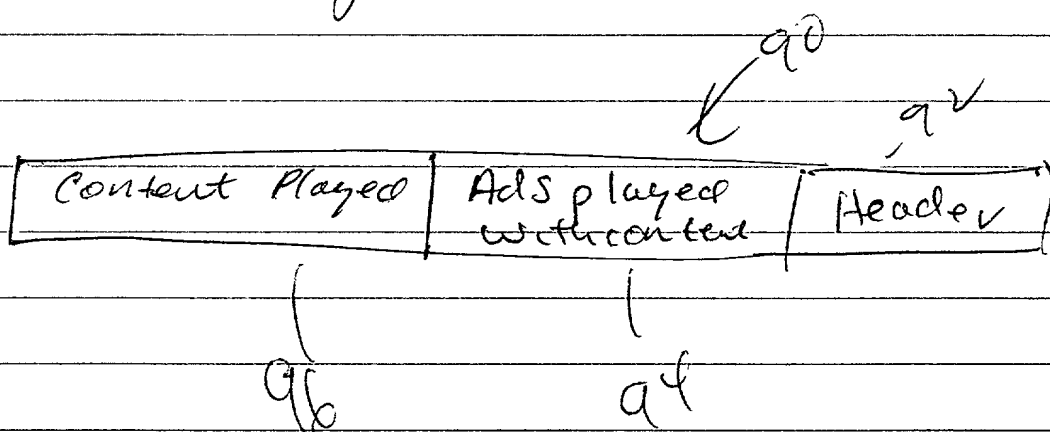 90
92
Content Played
Ads played
with content
Header
96
94